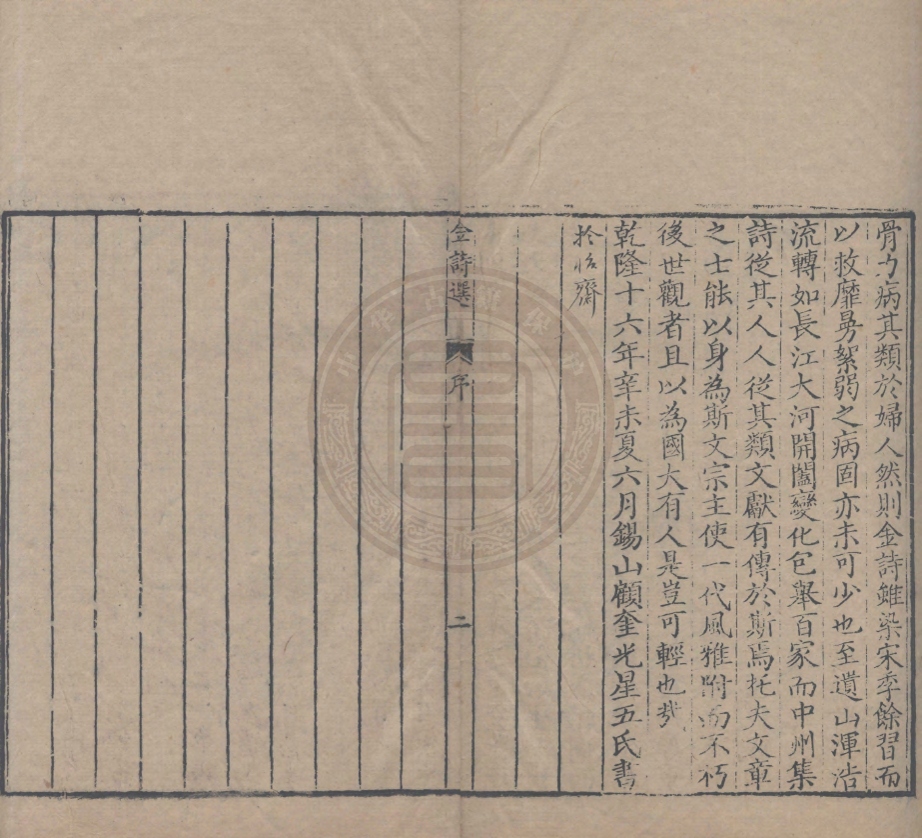 骨力病其類於婦人然則金詩雖染宋季餘習而
以救靡曼絮弱之病固亦未可少也至遺山渾浩
流轉如長江大河開闔變化包舉百家而中州集
詩從其人人從其類文獻有傳於斯焉托夫文章
之士能以身為斯文宗主使一代風雅附而不朽
後世觀者且以為國大有人是豈可輕也哉
乾隆十六年辛未夏六月錫山顧奎光星五氏書
於怡齋
金詩選
序
二